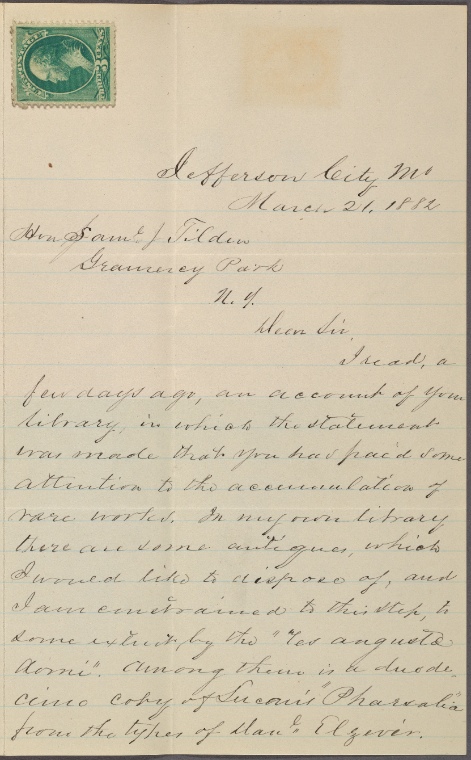 3 CENTS
Jefferson City Mo
March 21, 1882
Hon Saml J Tilden
Gramercy Park
N. Y.
Dear Sir,
I read, a
few days ago, an account of your
library, in which the statement
was made that you had paid some
attention to the accumulation of
rare works. In my own library
there are some antiques, which
I would like to dispose of, and
I am constrained to this step, to
some extent, by the "res angusta
domi". Among them is a duode-
cimo copy of Lucan's "Pharsalia"
from the types of Danl Elzevir.